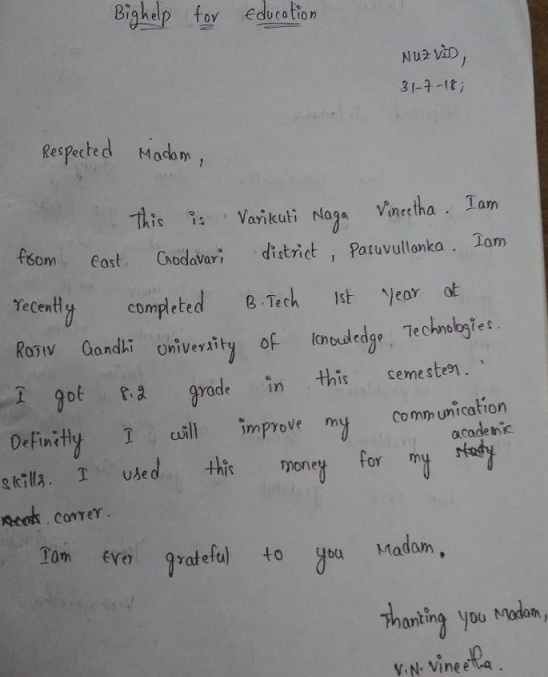 Bighelp for Education
NUZVID,
31-7-18;
Respected Madam,
This is Varikuti Naga Vineetha. Iam
from East Godavari district, Pasuvullanka. Iam
recently completed B.Tech 1st year at
Rajiv Gandhi University of Knowledge Technologies.
I got 8.2 grade in this semester.
Definitly I will improve my communication
skills. I used this money for my academic
carrer.
Iam ever grateful to you Madam.
Thanking you Madam,
V.N. Vineetha.